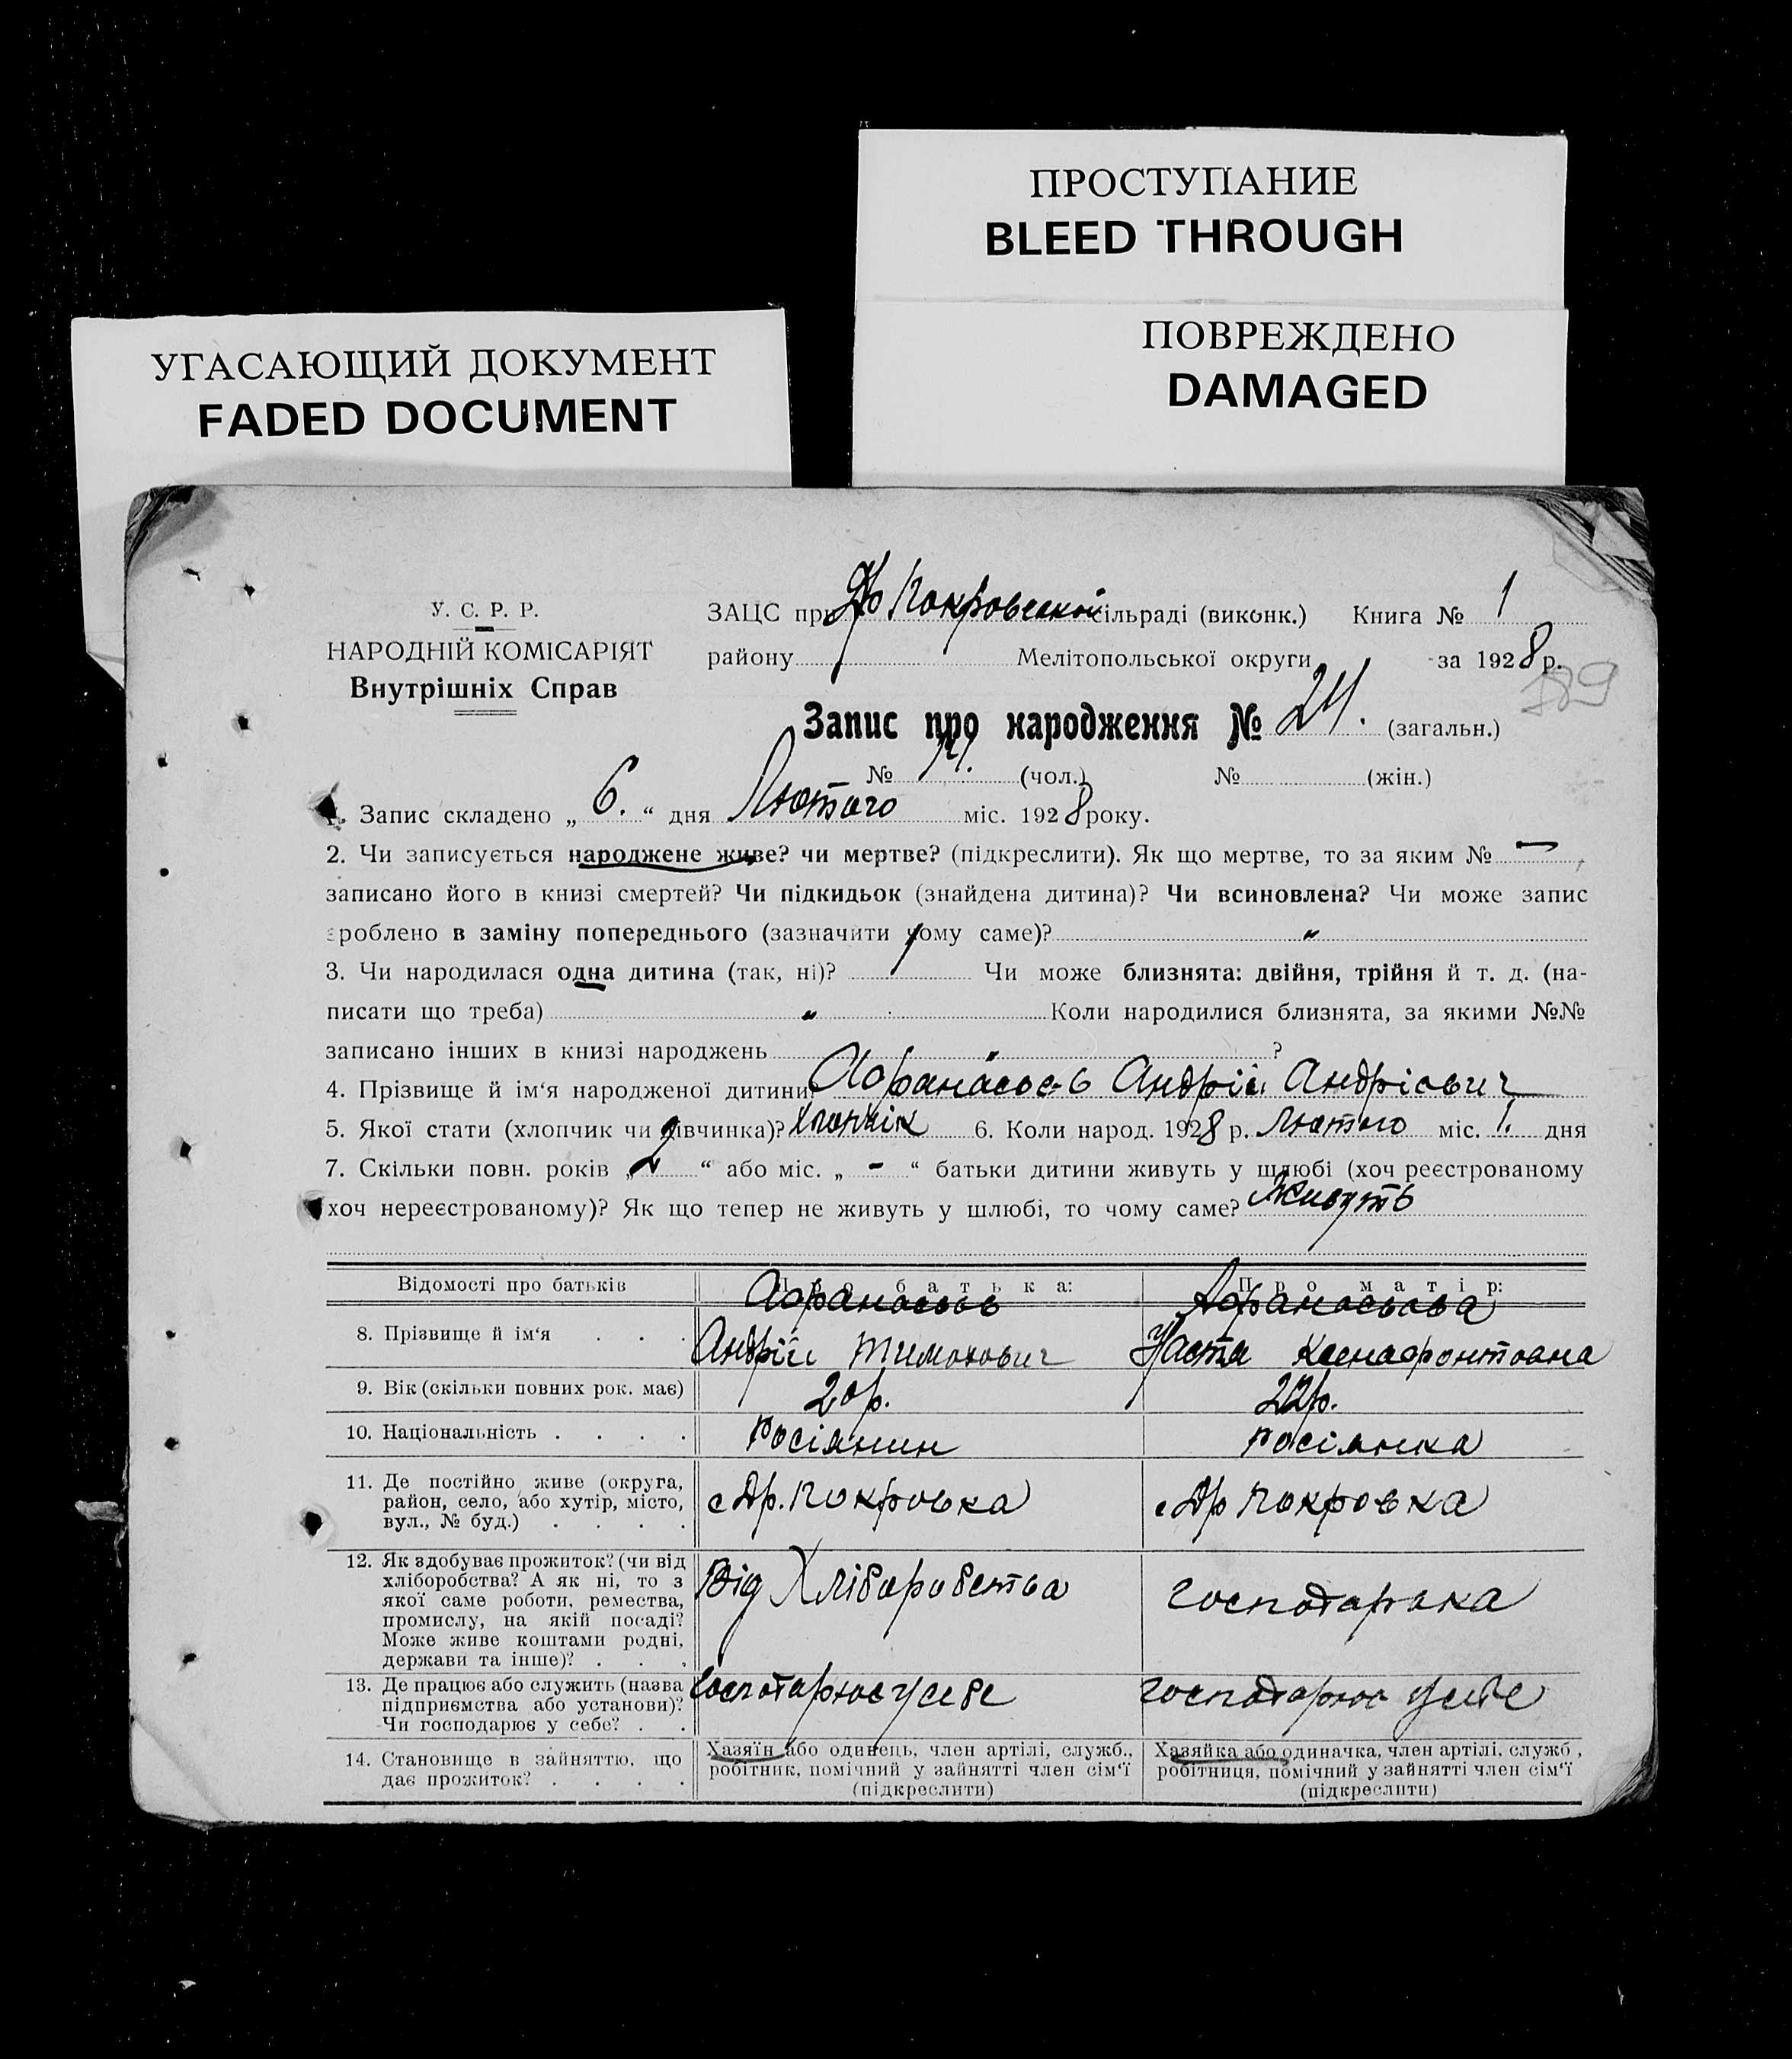 ПРОСТУПАНИЕ
BLEED THROUGH
ПОВРЕЖДЕНО
DAMAGED
УГАСАЮЩИЙ ДОКУМЕНТ
FADED DOCUMENT
У. С. Р. Р.
НАРОДНІЙ КОМІСАРІЯТ
Внутрішніх Справ
ЗАЦС при Др Покровській сільраді (виконк.) Книга № 1
району Мелітопольської округи за 1928 р.
189
Запис про народження № 24. (загальн.)
№ 14. (чол.) № (жін.)
1. Запис складено „ 6. “ дня Лютого міс. 1928 року.
2. Чи записується народжене живе? чи мертве? (підкреслити). Як що мертве, то за яким № —,
записано його в книзі смертей? Чи підкидьок (знайдена дитина)? Чи всиновлена? Чи може запис
зроблено в заміну попереднього (зазначити чому саме)? „
3. Чи народилася одна дитина (так, ні)? Чи може близнята: двійня, трійня й т. д. (на-
писати що треба) „ Коли народилися близнята, за якими №№
записано інших в книзі народжень „ ?
4. Прізвище й ім‘я народженої дитини Афанасьєв Андрій Андрієвич
5. Якої стати (хлопчик чи дівчинка)? Хлопчік 6. Коли народ. 1928 р. Лютого міс. 1. дня
7. Скільки повн. років „ 2 “ або міс. „ - “ батьки дитини живуть у шлюбі (хоч реєстрованому
хоч нереєстрованому)? Як що тепер не живуть у шлюбі, то чому саме? Живуть
Відомості про батьків Про батька: Про матір:
8. Прізвище й ім‘я . . . Афанасьєв Андрій Тимохович Афанасьєва Наста Ксенафонтовна
9. Вік (скільки повних рок. має) 20 р. 22 р.
10. Національність . . . . Росіянин Росіянка
11. Де постійно живе (округа, район, село, або хутір, місто, вул., № буд.) . . . . с Др. Покровка с Др Покровка
12. Як здобуває прожиток? (чи від хліборобства? А як ні, то з якої саме роботи, ремества, промислу, на якій посаді? Може живе коштами родні, держави та інше)? . . . Від Хліборобства господарка
13. Де працює або служить (назва підприємства або установи)? Чи господарює у себе? . . господарює у себе господарює у себе
14. Становище в зайняттю, що дає прожиток? . . . . Хазяїн або одинець, член артілі, служб., робітник, помічний у зайнятті член сім‘ї (підкреслити) Хазяйка або одиначка, член артілі, служб., робітниця, помічний у зайнятті член сім‘ї (підкреслити)